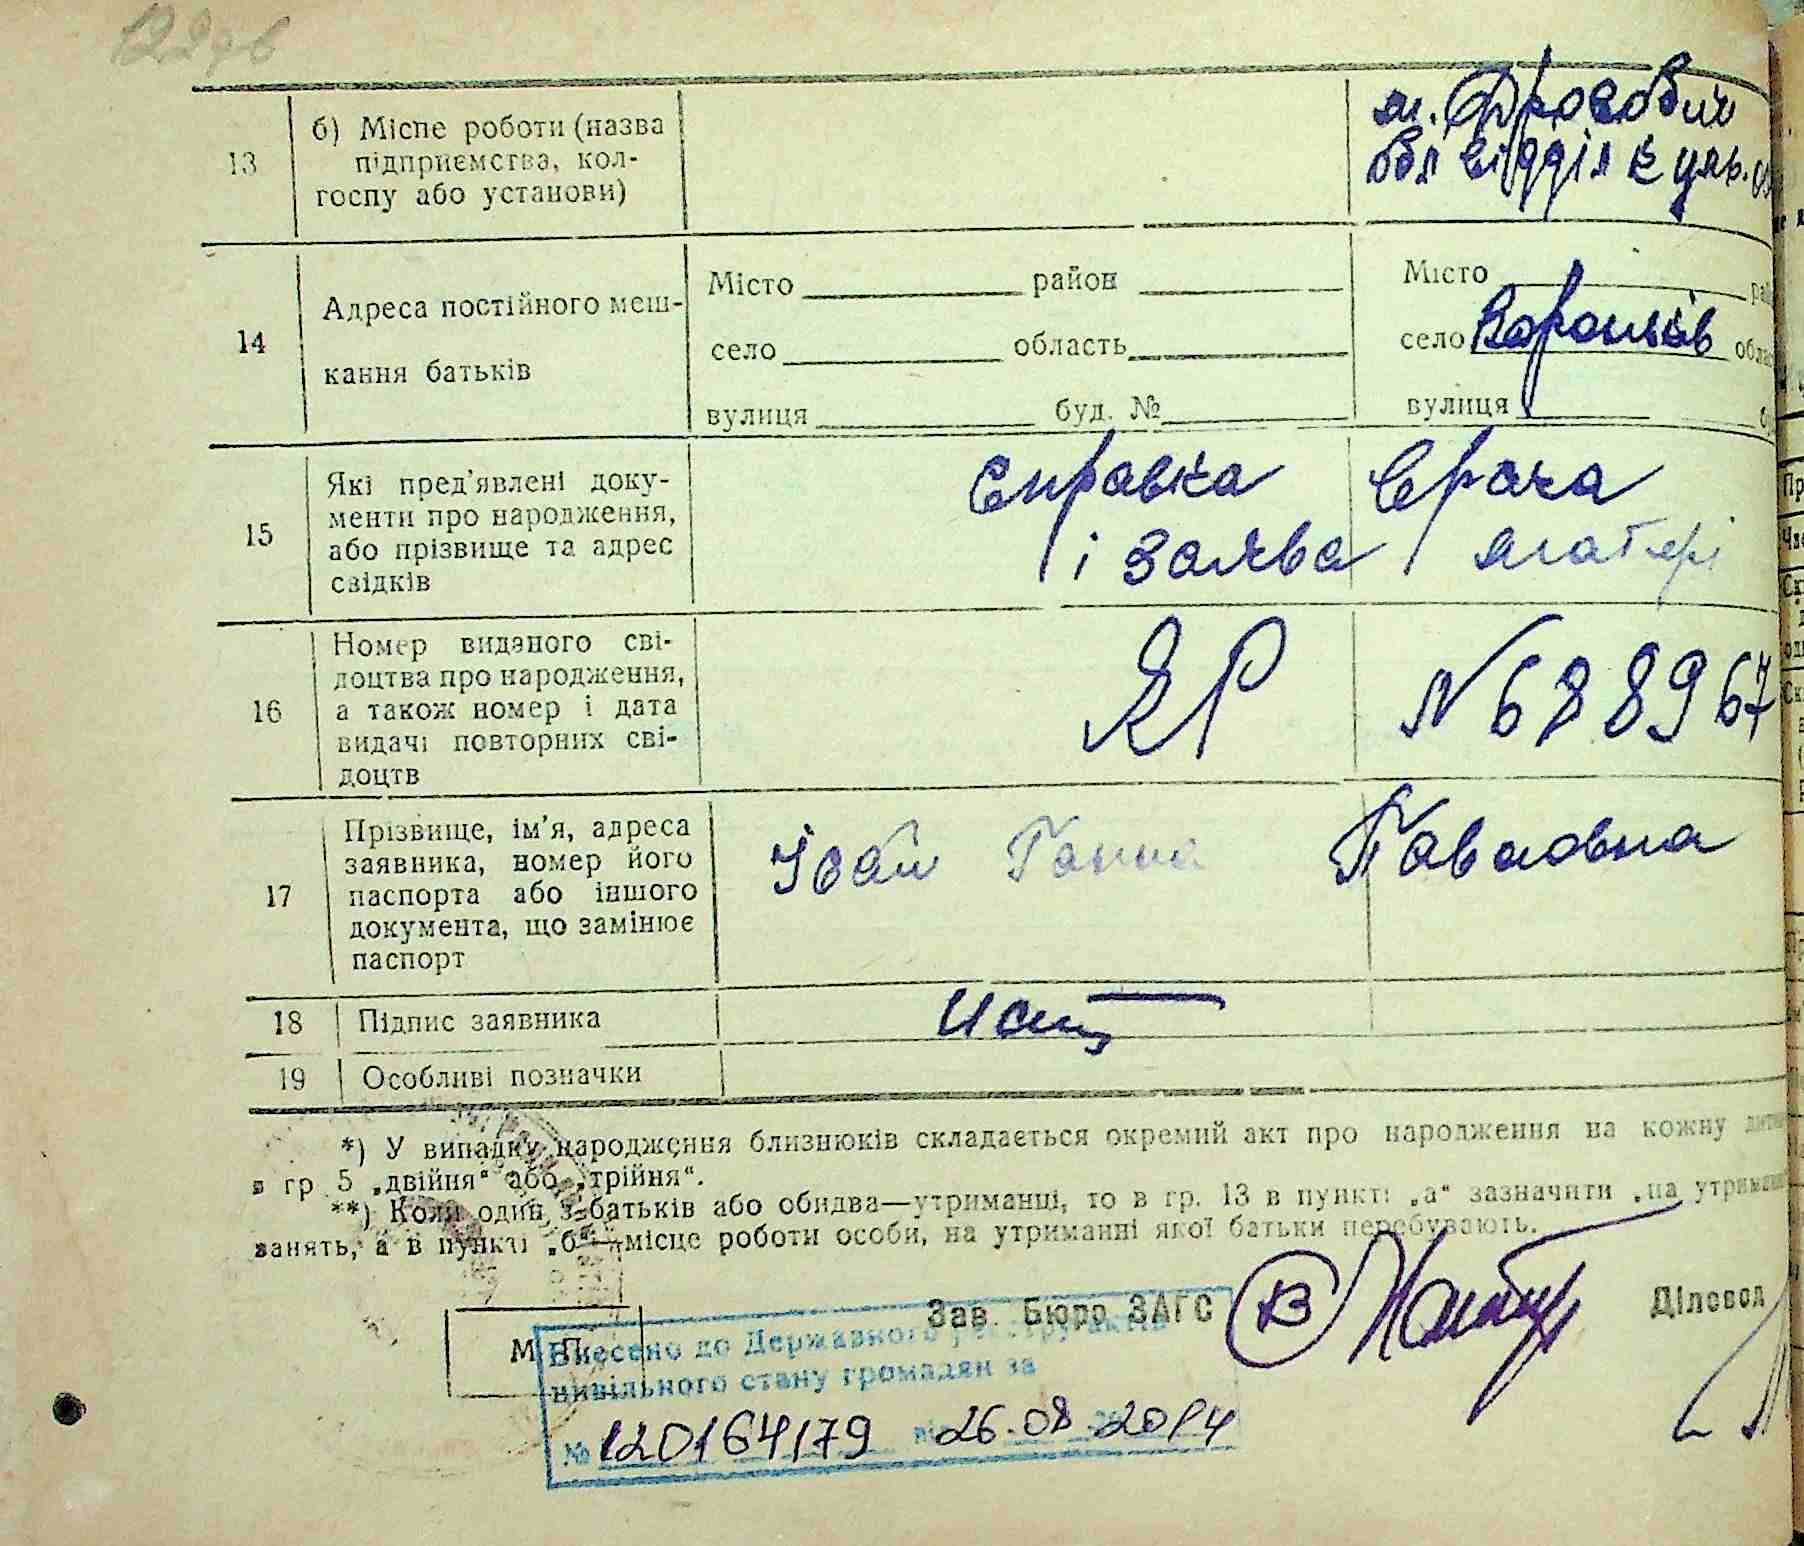 13
б) Місце роботи (назва
підприємства, кол-
госпу або установи)
м. Дрогобич
обл відділ культ.
14
Адреса постійного меш-
кання батьків
Місто район
село область
вулиця буд. №
Місто
село
вулиця
15
Які пред'явлені доку-
менти про народження,
або прізвище та адрес
свідків
Справка Врача
і заява матері
16
Номер виданого сві-
доцтва про народження,
а також номер і дата
видачі повторних сві-
доцтв
ЯР №688967
17
Прізвище, ім'я, адреса
заявника, номер його
паспорта або іншого
документа, що замінює
паспорт
Ганна Павловна
18
Підпис заявника
19
Особливі позначки
*) У випадку народження близнюків складається окремий акт про народження на кожну
в гр. 5 „двійня“ або „трійня“.
**) Коли один з батьків або обидва—утриманці, то в гр. 13 в пункті „а“ зазначити „на
занять, а в пункті „б“—місце роботи особи, на утриманні якої батьки перебувають.
Зав. Бюро ЗАГС
Діловод
М. П.
Внесено до Державного реєстру актів
цивільного стану громадян за
№ 120164179 від 26.08.2014